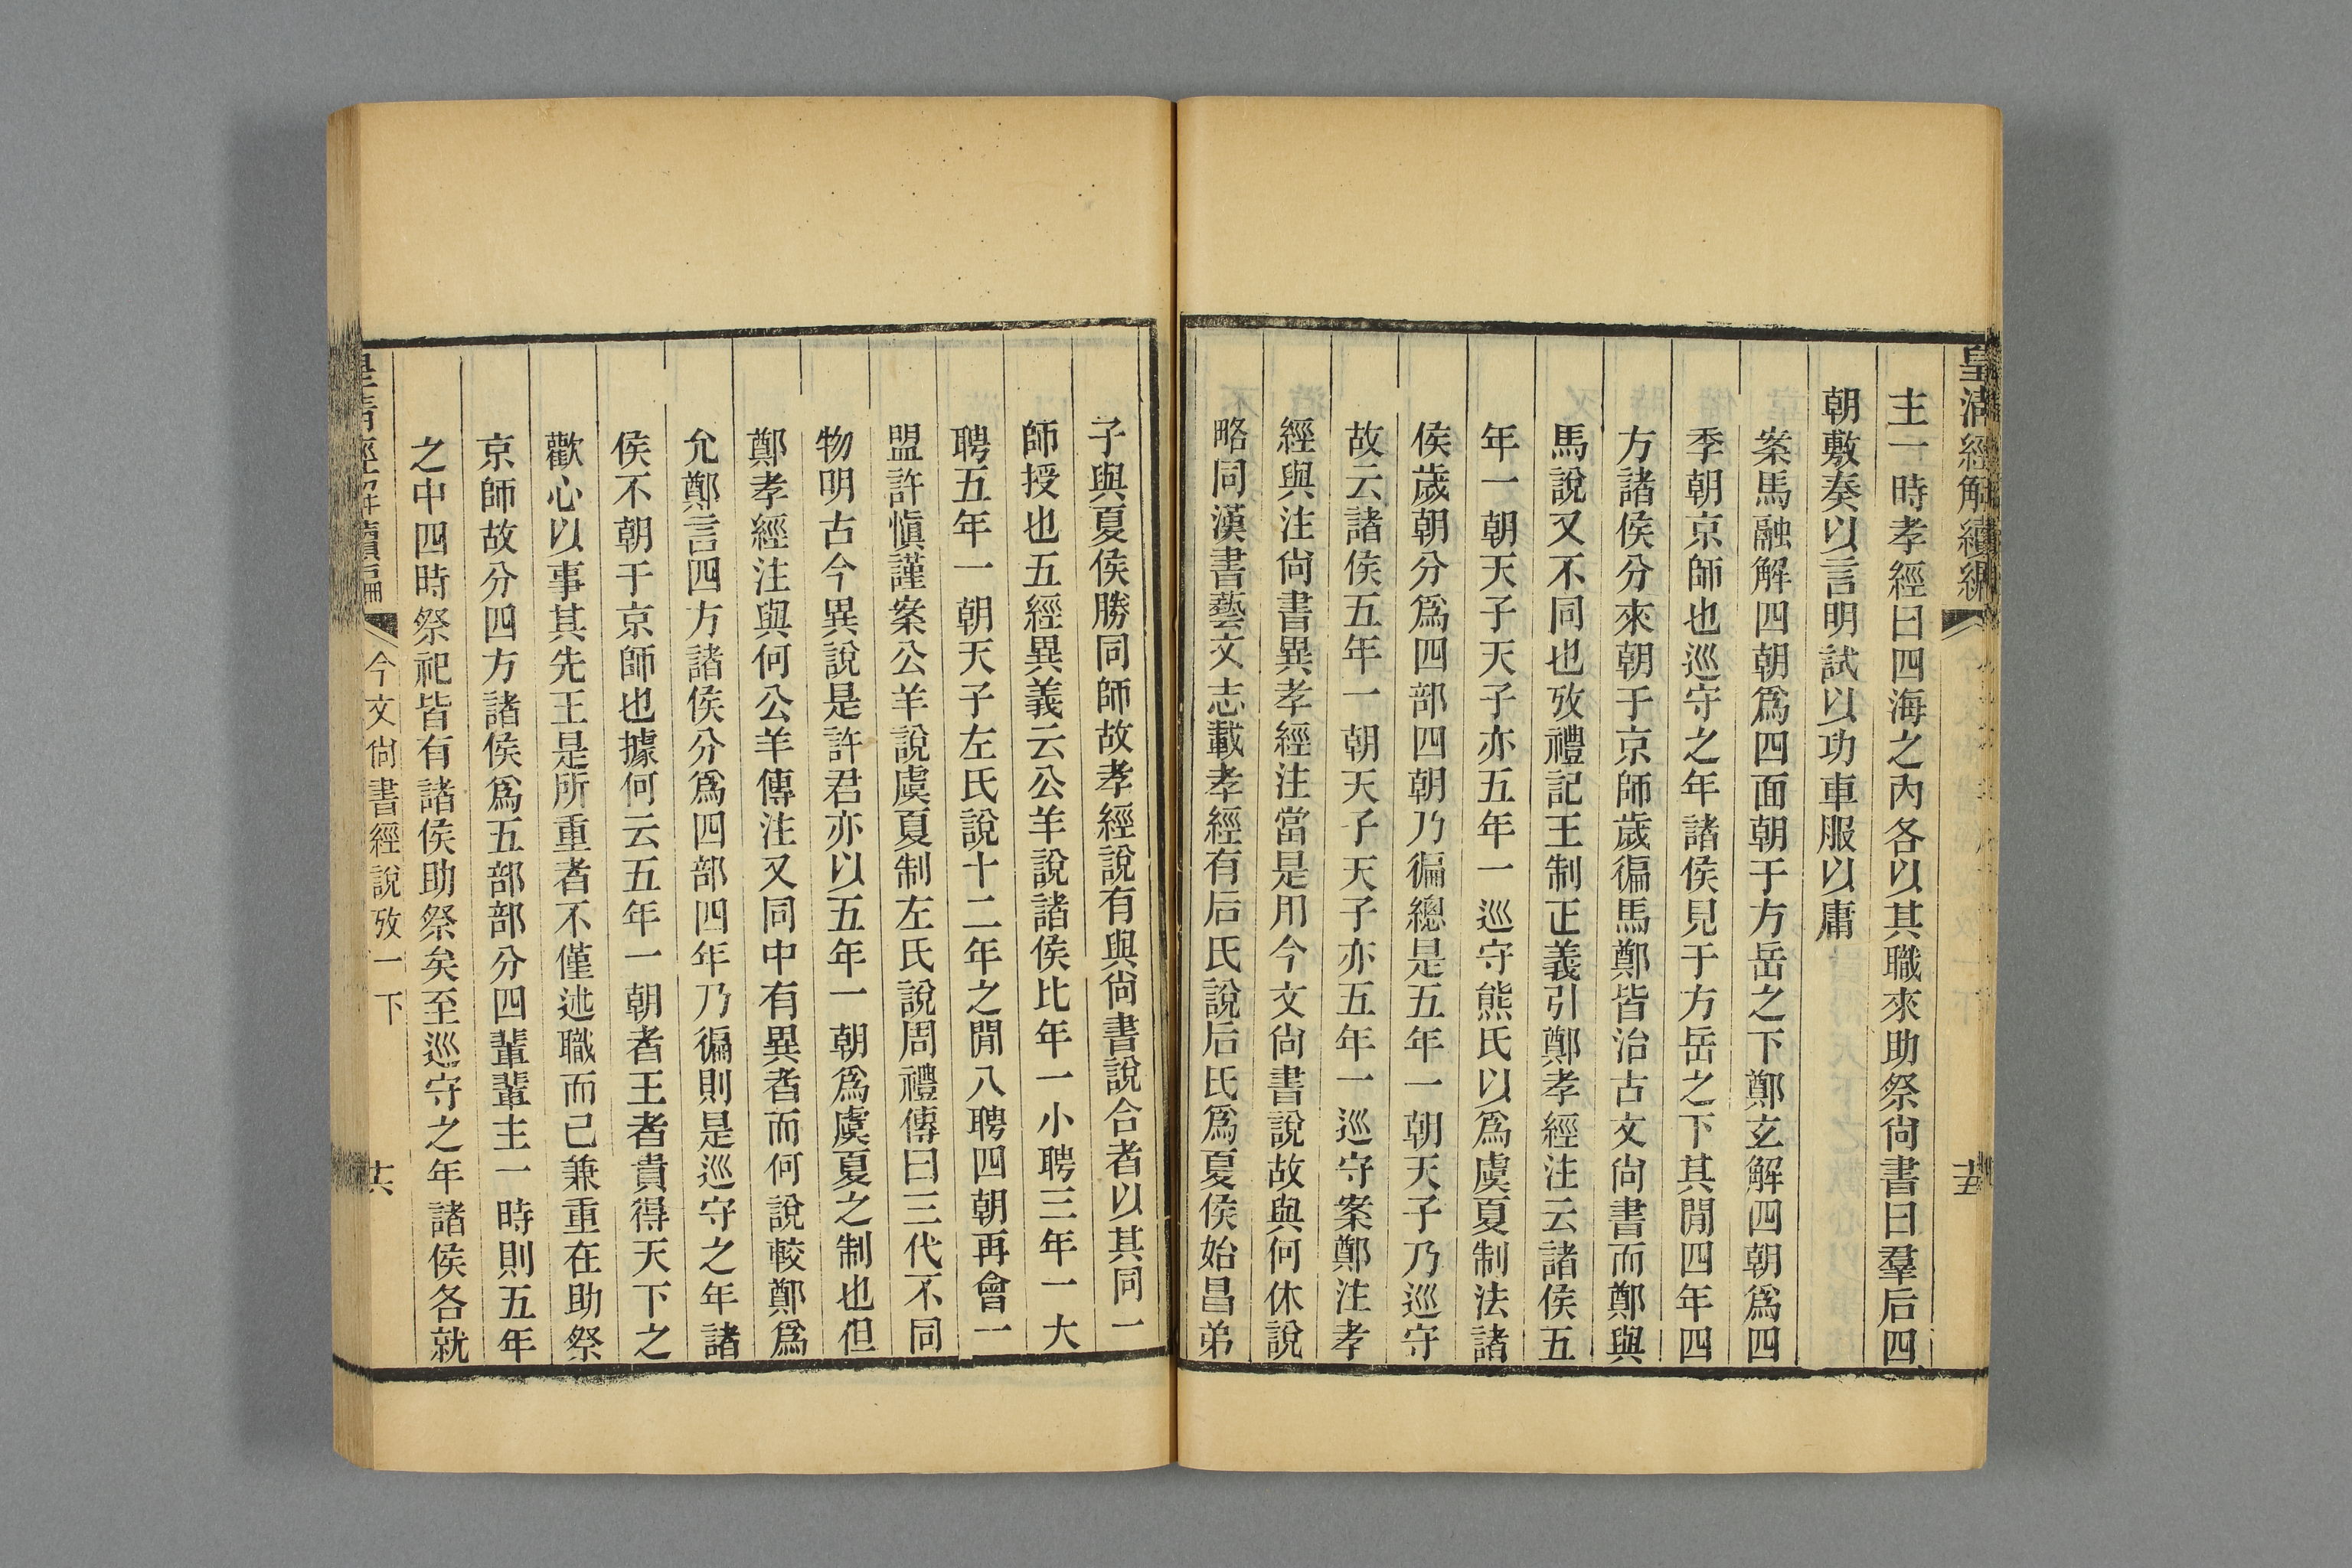 皇清經解續編
十五
主一時孝經曰四海之內各以其職來助祭尙書曰羣后四
朝敷奏以言明試以功車服以庸
案馬融解四朝爲四面朝于方岳之下鄭玄解四朝爲四
季朝京師也巡守之年諸侯見于方岳之下其閒四年四
方諸侯分來朝于京師歲徧馬鄭皆治古文尙書而鄭與
馬說又不同也攷禮記王制正義引鄭孝經注云諸侯五
年一朝天子天子亦五年一巡守熊氏以爲虞夏制法諸
侯歲朝分爲四部四朝乃徧總是五年一朝天子乃巡守
故云諸侯五年一朝天子天子亦五年一巡守案鄭注孝
經與注尙書異孝經注當是用今文尙書說故與何休說
略同漢書藝文志載孝經有后氏說后氏爲夏侯始昌弟
子與夏侯勝同師故孝經說有與尙書說合者以其同一
師授也五經異義云公羊說諸侯比年一小聘三年一大
聘五年一朝天子左氏說十二年之閒八聘四朝再會一
盟許愼謹案公羊說虞夏制左氏說周禮傳曰三代不同
物明古今異說是許君亦以五年一朝爲虞夏之制也但
鄭孝經注與何公羊傳注又同中有異者而何說較鄭爲
允鄭言四方諸侯分爲四部四年乃徧則是巡守之年諸
侯不朝于京師也據何云五年一朝者王者貴得天下之
歡心以事其先王是所重者不僅述職而已兼重在助祭
京師故分四方諸侯爲五部部分四輩輩主一時則五年
之中四時祭祀皆有諸侯助祭矣至巡守之年諸侯各就
皇清經解續編
今文尙書經說攷一下
十六